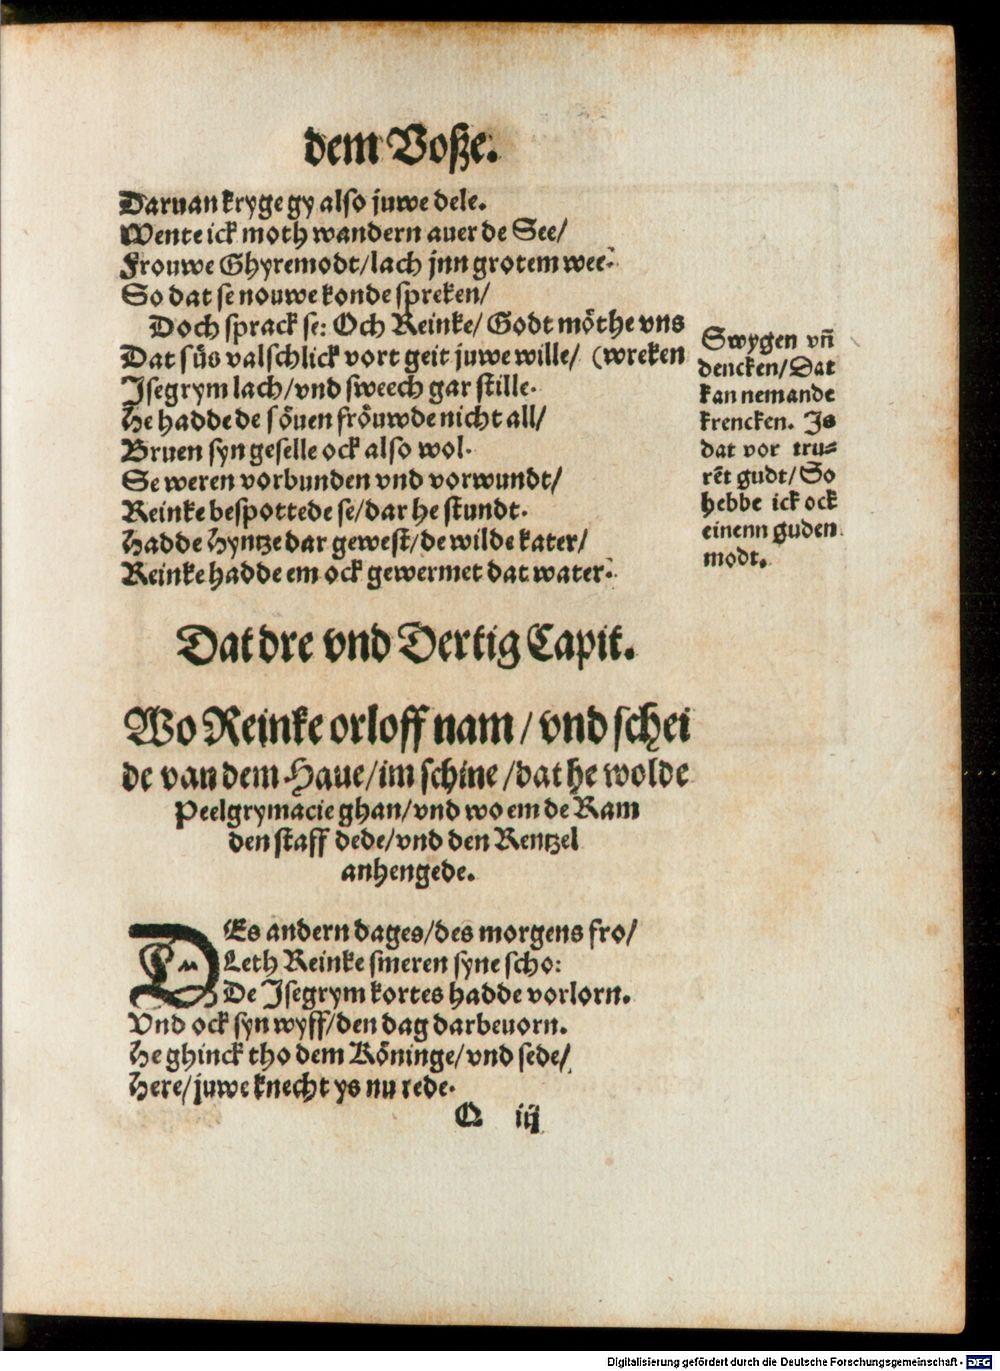 dem Voße.
Daruan kryge gy also juwe dele.
Wente ick moth wandern auer de See/
Frouwe Ghyremodt/lach jnn grotem wee.
So dat se nouwe konde spreken/
Doch sprack se: Och Reinke/ Godt möthe vns
Dat süs valschlick vort geit juwe wille/ (wreken
Isegrym lach/vnd sweech gar stille.
He hadde de söuen fröuwde nicht all/
Bruen syn geselle ock also wol.
Se weren vorbunden vnd vorwundt/
Reinke bespottede se/dar he stundt.
Hadde Hyntze dar gewest/de wilde kater/
Reinke hadde em ock gewermet dat water.
Swygen vn̄
dencken/Dat
kan nemande
krencken. Is
dat vor tru-
rēt gudt/So
hebbe ick ock
einenn guden
modt.
Dat dre vnd Dertig Capit.
Wo Reinke orloff nam/vnd schei
de van dem Haue/im schine/dat he wolde
Peelgrymacie ghan/vnd wo em de Ram
den staff dede/vnd den Rentzel
anhengede.
DEs andern dages/des morgens fro/
Leth Reinke smeren syne scho:
De Isegrym kortes hadde vorlorn.
Vnd ock syn wyff/den dag darbeuorn.
He ghinck tho dem Köninge/vnd sede/
Here/juwe knecht ys nu rede.
Q iij
Digitalisierung gefördert durch die Deutsche Forschungsgemeinschaft - DFG